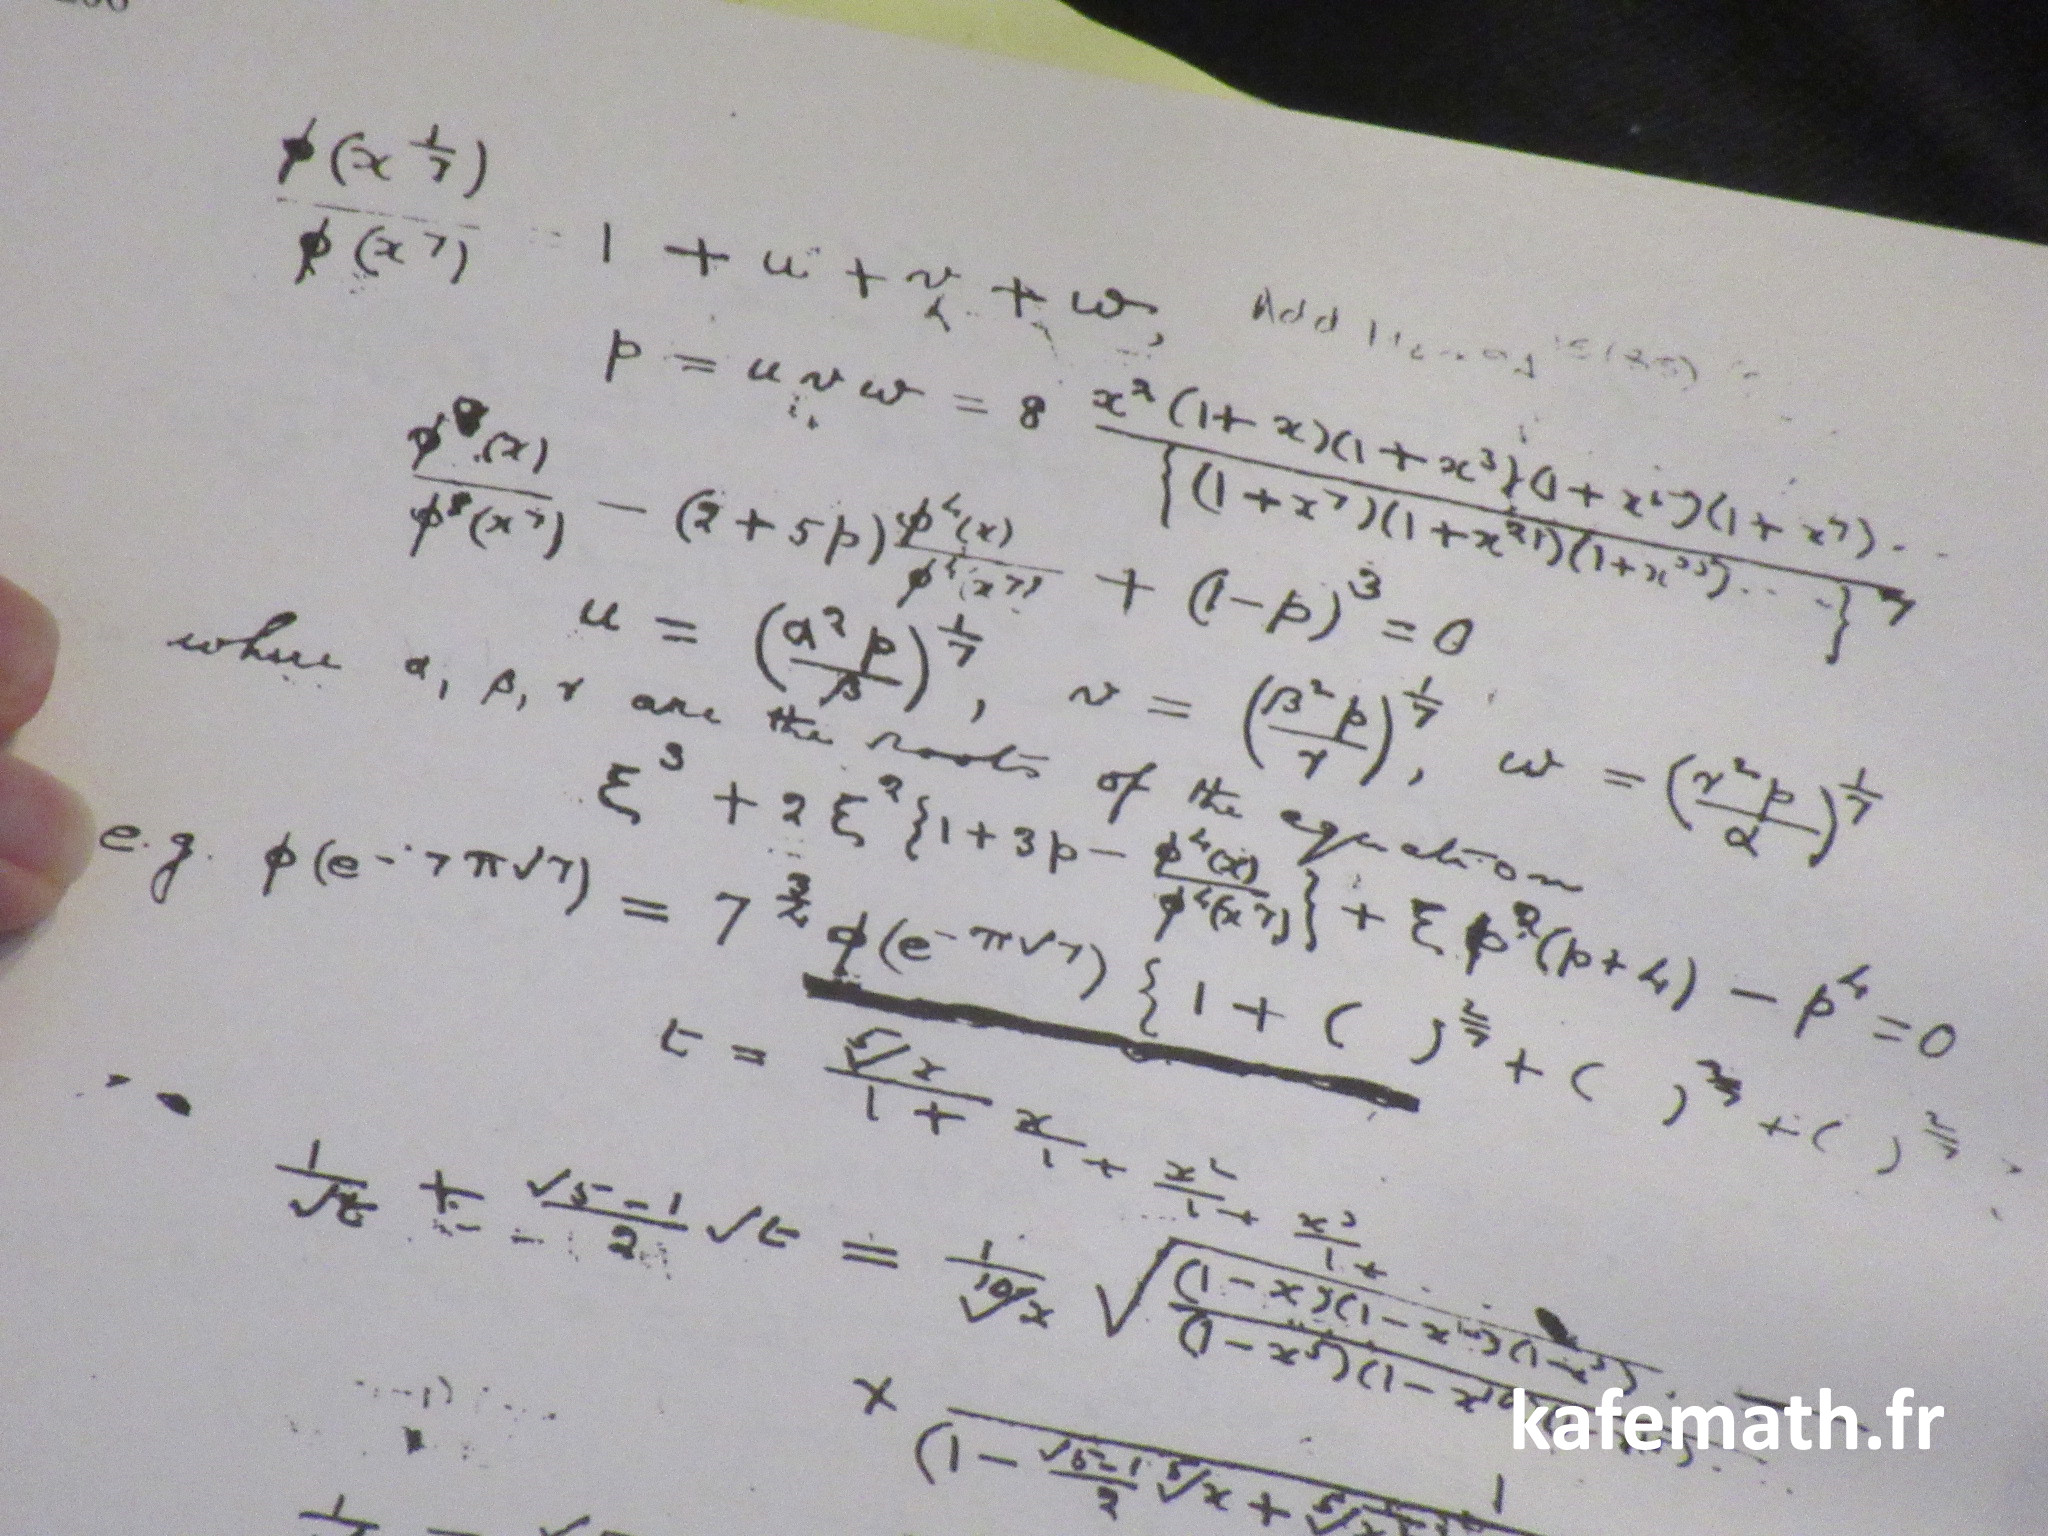 φ(x^{1/7}) / φ(x^7) = 1 + u + v + w,
p = uvw = 8 x^2 (1+x)(1+x^3)(1+x^5)(1+x^7)... / {(1+x^7)(1+x^{21})(1+x^{35})...}^7
φ^8(x) / φ^8(x^7) − (2 + 5p) φ^4(x) / φ^4(x^7) + (1−p)^3 = 0
u = (α^2 p / β)^{1/7}, v = (β^2 p / γ)^{1/7}, w = (γ^2 p / α)^{1/7}
where α, β, γ are the roots of the equation
ξ^3 + 2ξ^2 {1 + 3p − φ^4(x) / φ^4(x^7)} + ξ p^2 (p+4) − p^4 = 0
e.g. φ(e^{−7π√7}) = 7^{−3/4} φ(e^{−π√7}) {1 + ( )^{2/7} + ( )^{2/7} + ( )^{2/7}
t = ⁵√x / 1 + x / 1 + x^2 / 1 + x^3 / 1 + ...
1/√t + (√5−1)/2 √t = 1/¹⁰√x √((1−x)(1−x^2)(1−x^3)... / (1−x^5)(1−x^{10})
× 1 / (1 − (√5−1)/2 ⁵√x +
kafemath.fr